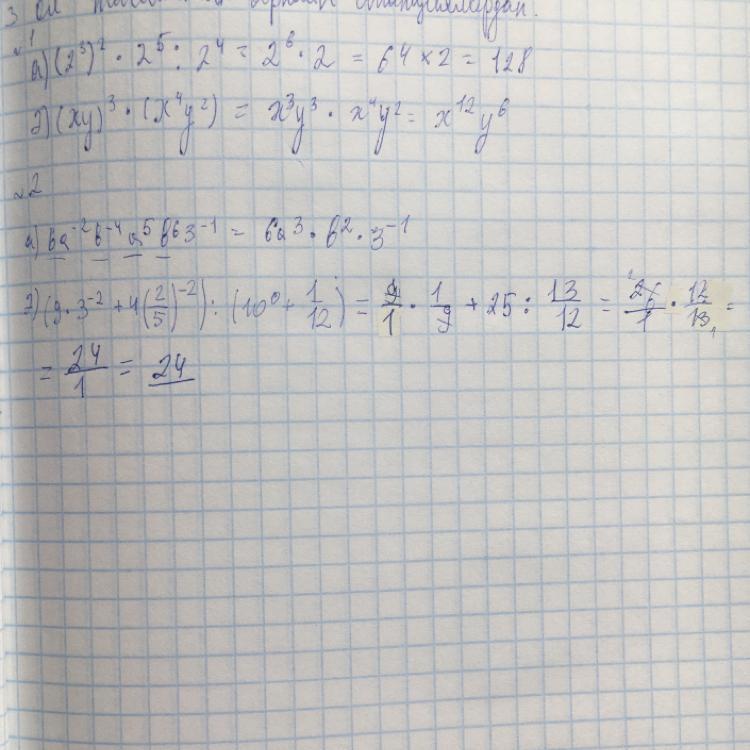 3
№1
а) (2³)² · 2⁵ : 2⁴ = 2⁶ · 2 = 64 × 2 = 128
2) (xy)³ · (x⁴y²) = x³y³ · x⁴y² = x¹²y⁶
№2
а) 6a⁻² b⁻⁴ a⁵ b⁶ 3⁻¹ = 6a³ · b² · 3⁻¹
2) (9 · 3⁻² + 4(2/5)⁻²) : (10⁰ + 1/12) = 9/1 · 1/9 + 25 : 13/12 = 26/1 · 12/13 =
= 24/1 = 24